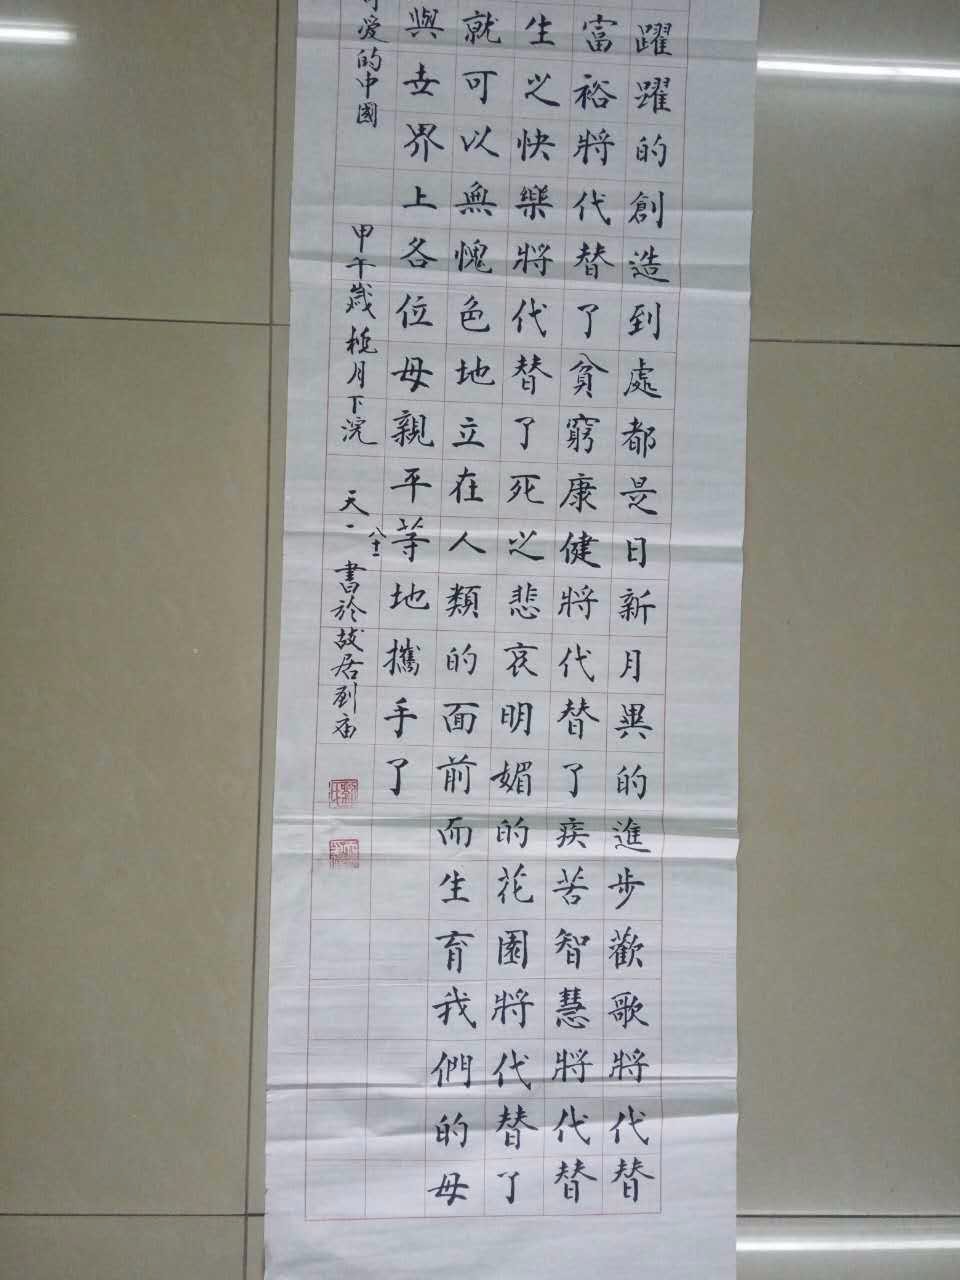 躍躍的創造到處都是日新月異的進步歡歌將代替
富裕將代替了貧窮康健將代替了疾苦智慧將代替
生之快樂將代替了死之悲哀明媚的花園將代替了
就可以無愧色地立在人類的面前而生育我們的母
與世界上各位母親平等地攜手了
愛的中國 甲午歲桃月下浣 天一 書於故居劉庙